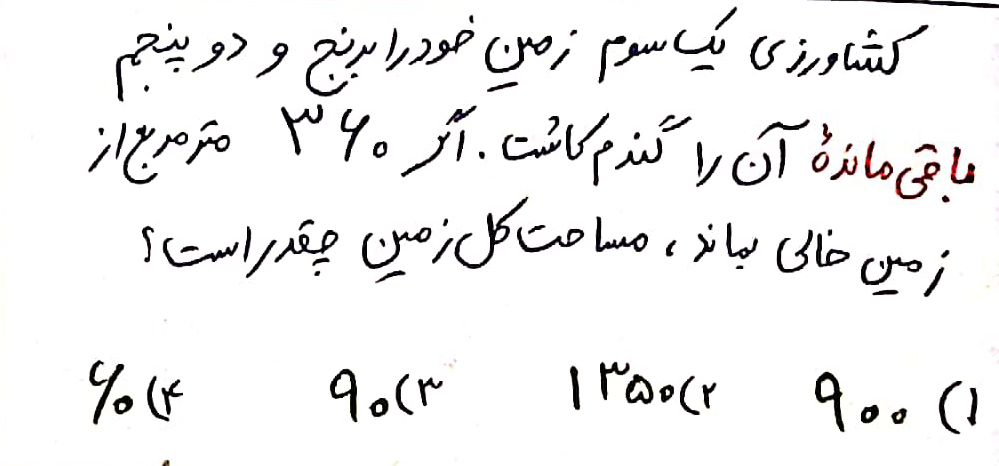 کشاورزی یک سوم زمین خود را برنج و دو پنجم
باقی ماندهٔ آن را گندم کاشت. اگر ۳۶۰ مترمربع از
زمین خالی بماند، مساحت کل زمین چقدر است؟
۱) ۹۰۰ ۲) ۱۳۵۰ ۳) ۹۰ ۴) ۶۰